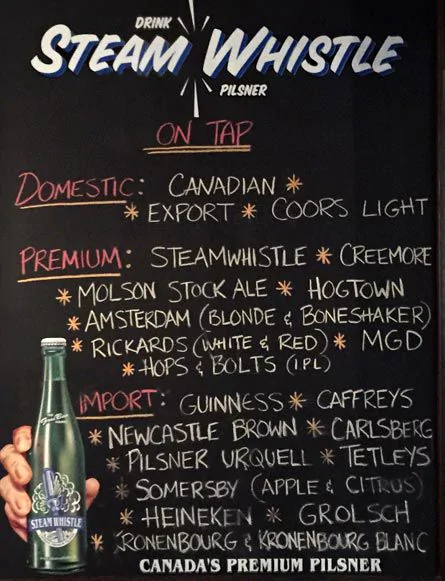 DRINK
STEAM WHISTLE
PILSNER
ON TAP
DOMESTIC: CANADIAN *
* EXPORT * COORS LIGHT
PREMIUM: STEAMWHISTLE * CREEMORE
* MOLSON STOCK ALE * HOGTOWN
* AMSTERDAM (BLONDE & BONESHAKER)
* RICKARDS (WHITE & RED) * MGD
* HOPS & BOLTS (IPL)
IMPORT: GUINNESS * CAFFREYS
* NEWCASTLE BROWN * CARLSBERG
* PILSNER URQUELL * TETLEYS
* SOMERSBY (APPLE & CITRUS)
* HEINEKEN * GROLSCH
* KRONENBOURG & KRONENBOURG BLANC
STEAM WHISTLE
CANADA'S PREMIUM PILSNER